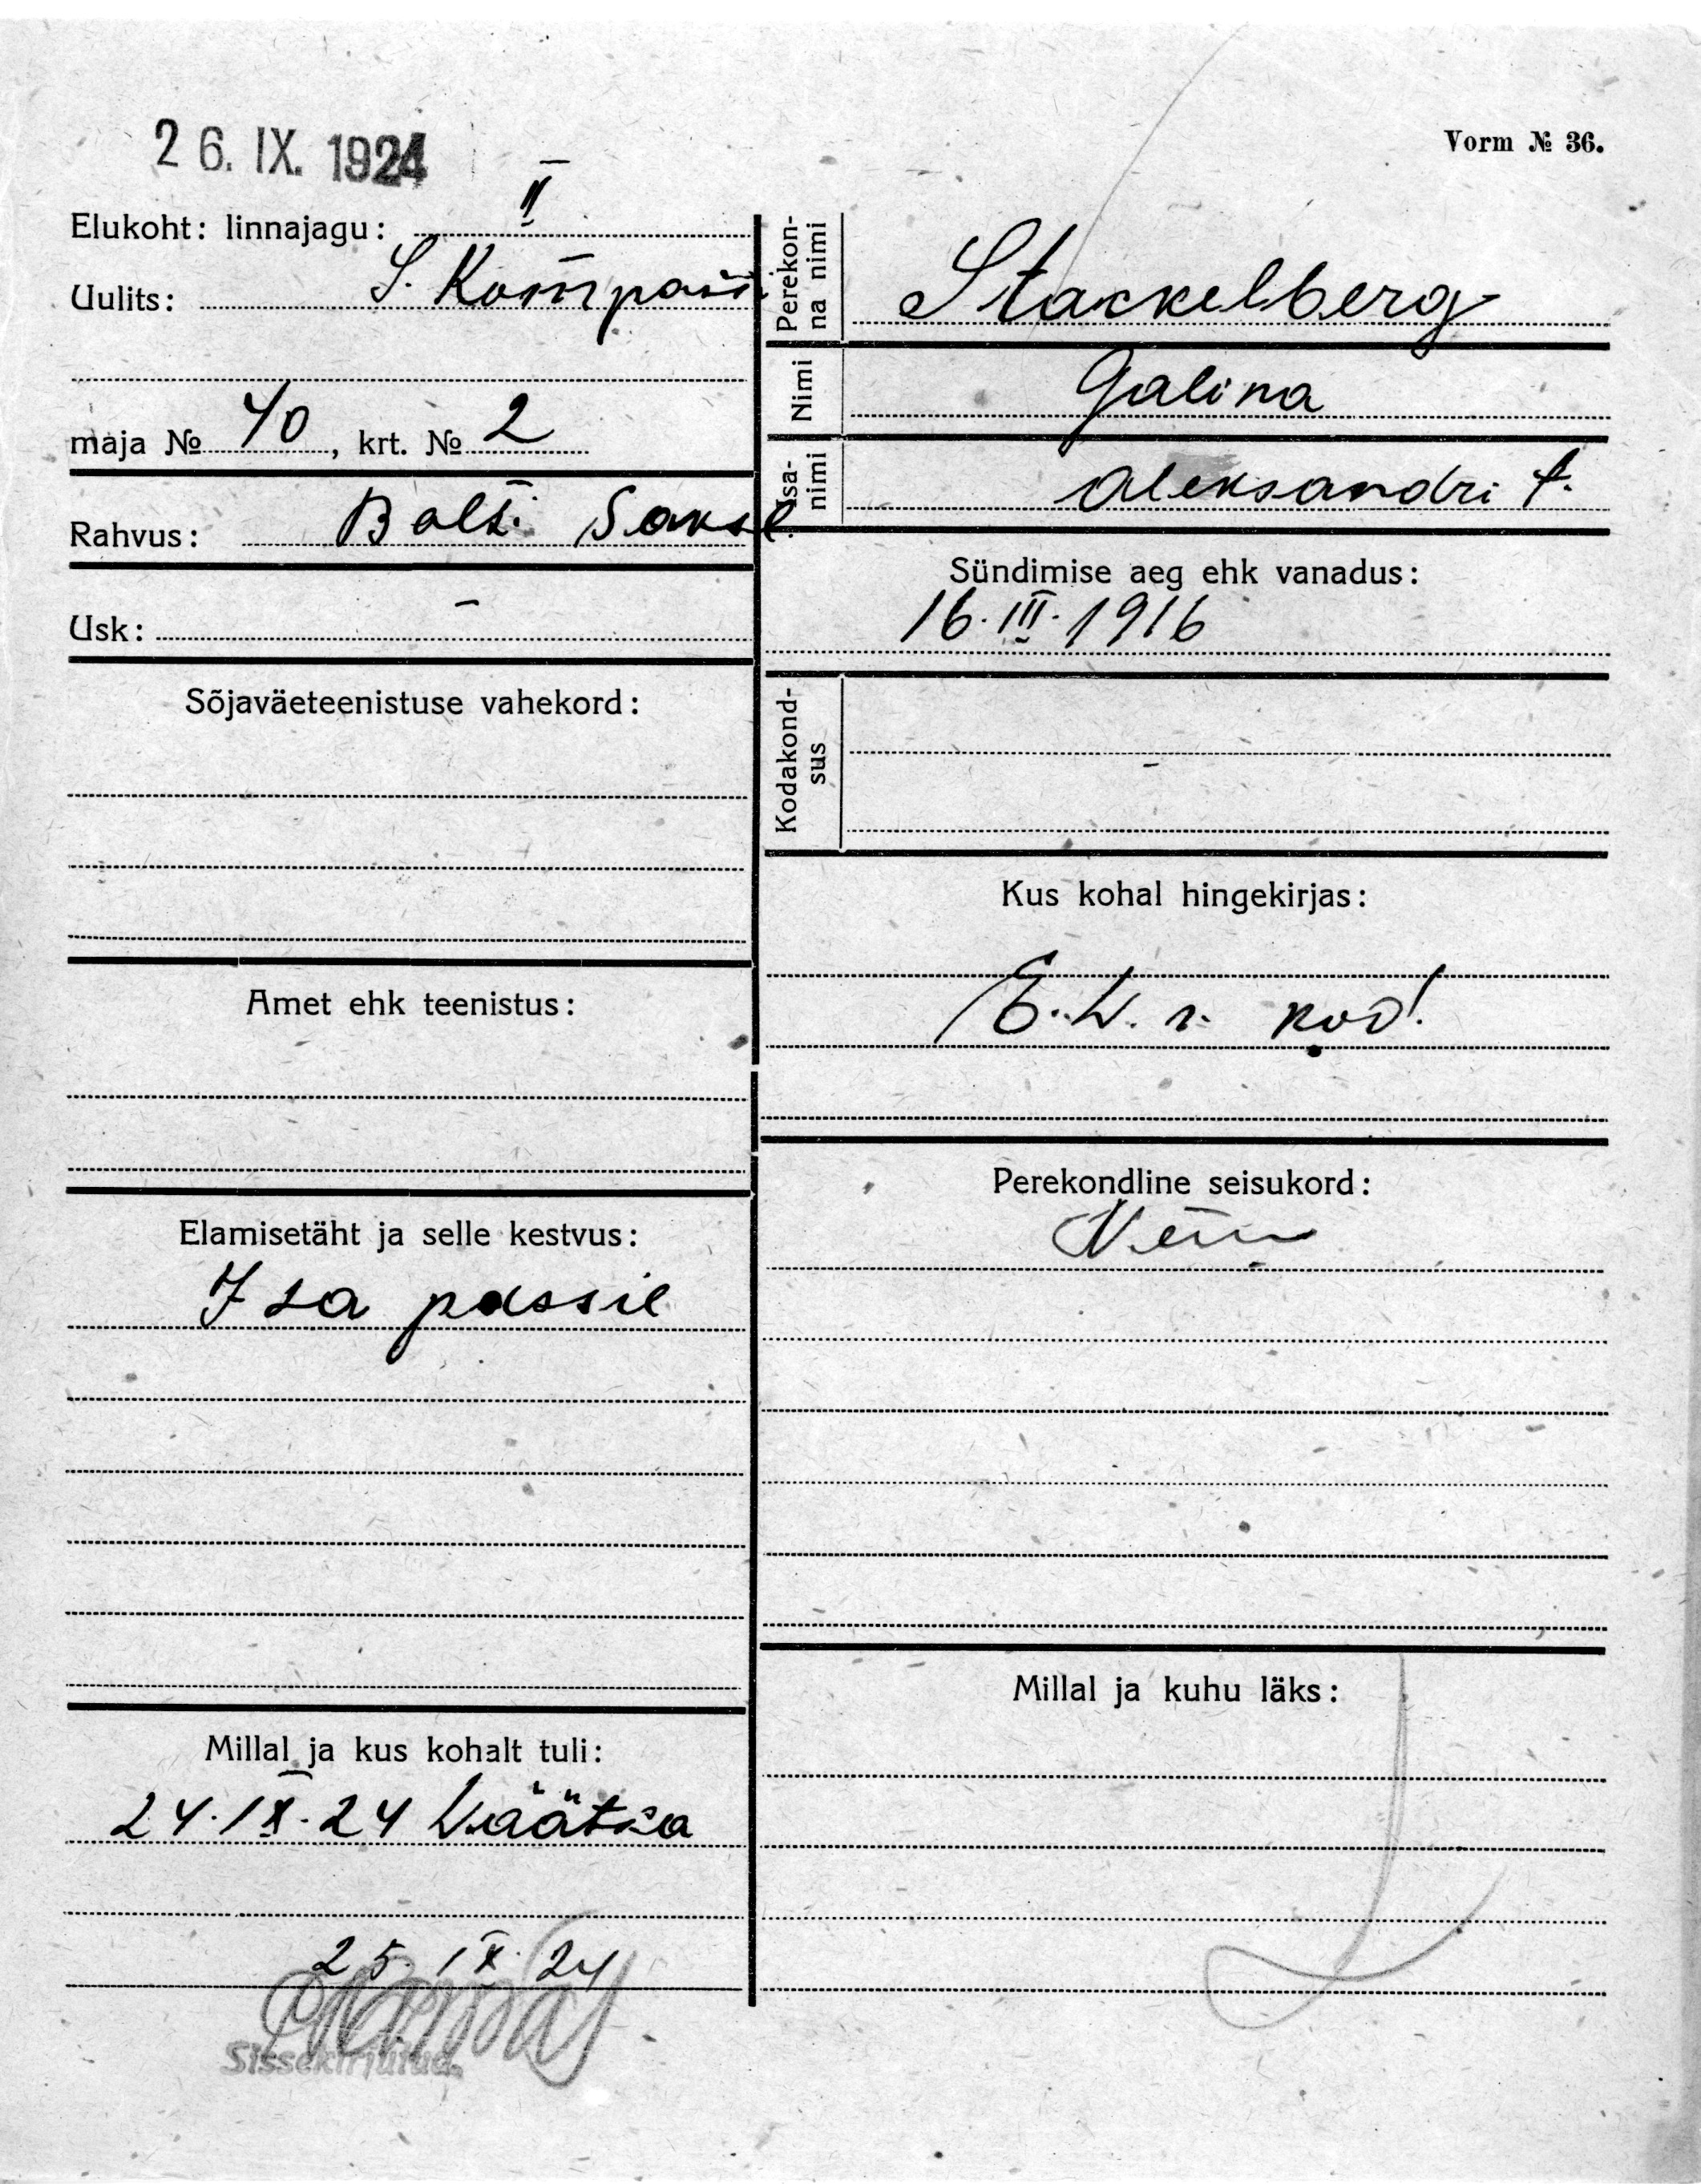 26. IX. 1924
Vorm № 36.
Elukoht: linnajagu: II
Uulits: S. Kompasii
maja № 40, krt. № 2
Rahvus: Balti Saksl.
Usk: –
Sõjaväeteenistuse vahekord:
Amet ehk teenistus:
Elamisetäht ja selle kestvus:
Isa passil
Millal ja kus kohalt tuli:
24.IX.24 Wäätsa
25. IX 24
Sissekirjutud.
Perekonna nimi Stackelberg
Nimi Galina
Isanimi Aleksandri t.
Sündimise aeg ehk vanadus:
16.III.1916
Kodakond-
sus
Kus kohal hingekirjas:
E.W. r. kod!
Perekondline seisukord:
Millal ja kuhu läks: